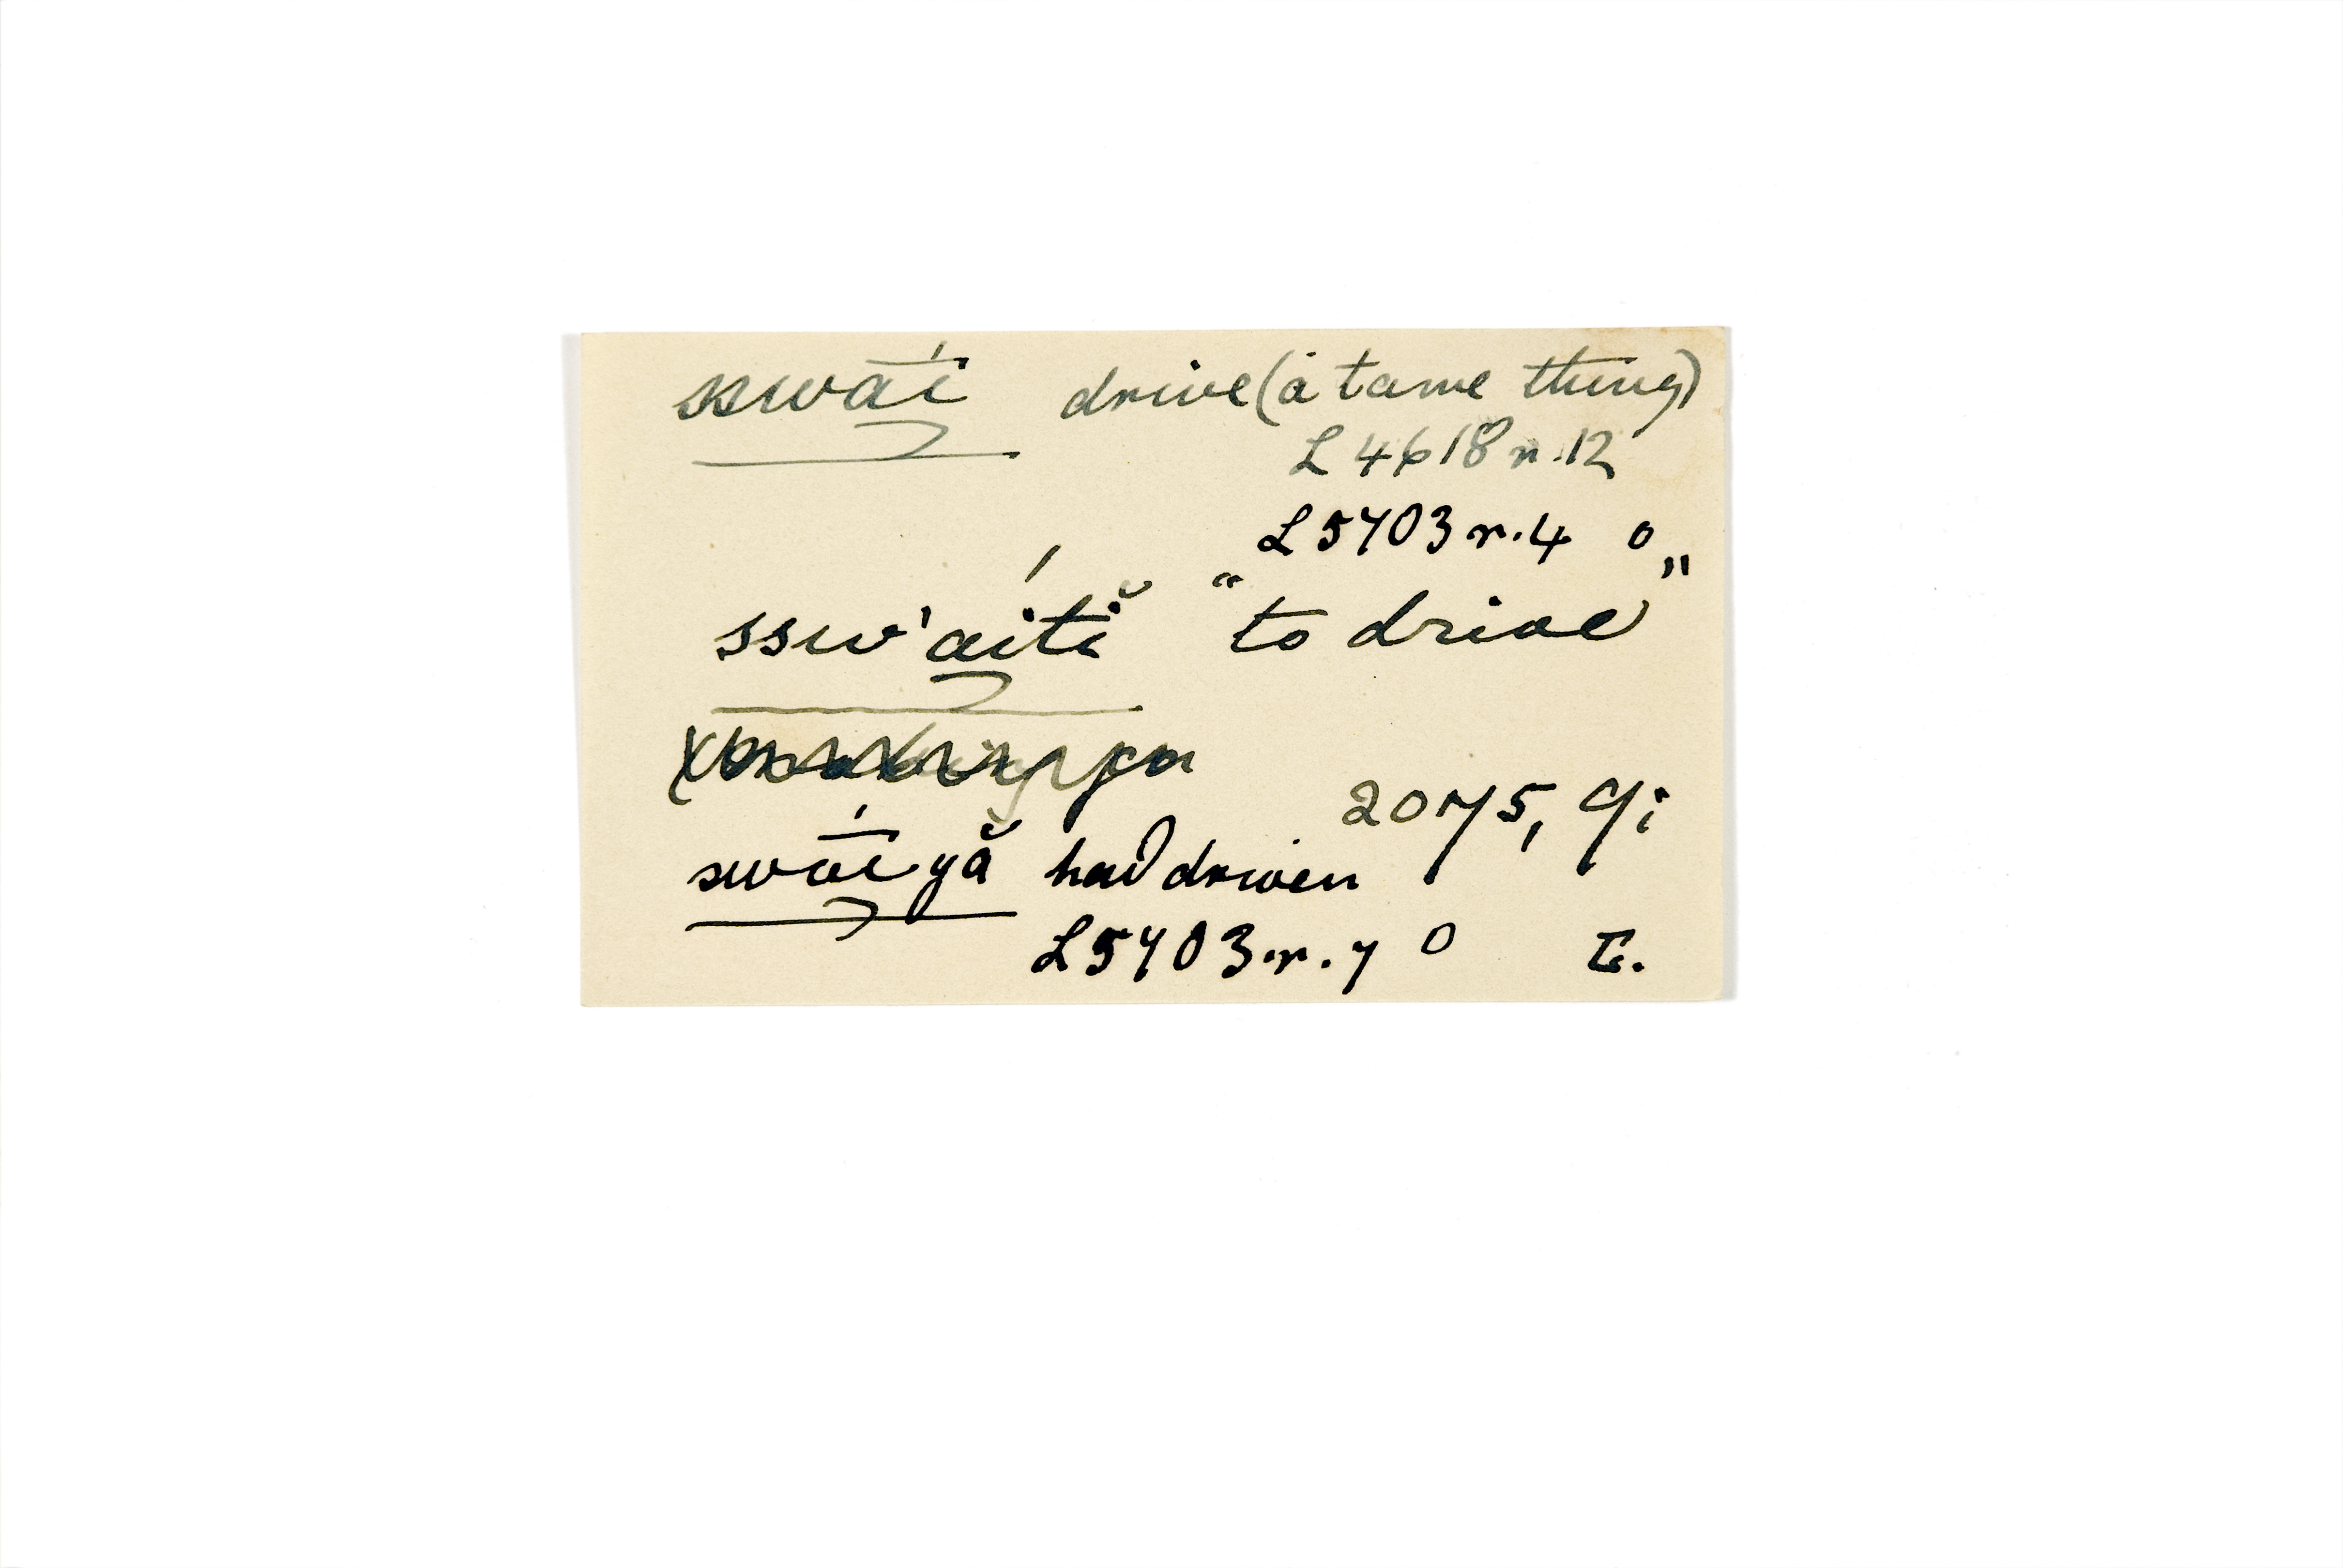 sswā́i drive (a tame thing)
L 4618 r. 12
L 5403 r. 4 o
ssw'áitĭ "to drive"
2075, 9;
swā́iyă had driven
L 5403. r. 7 o T.